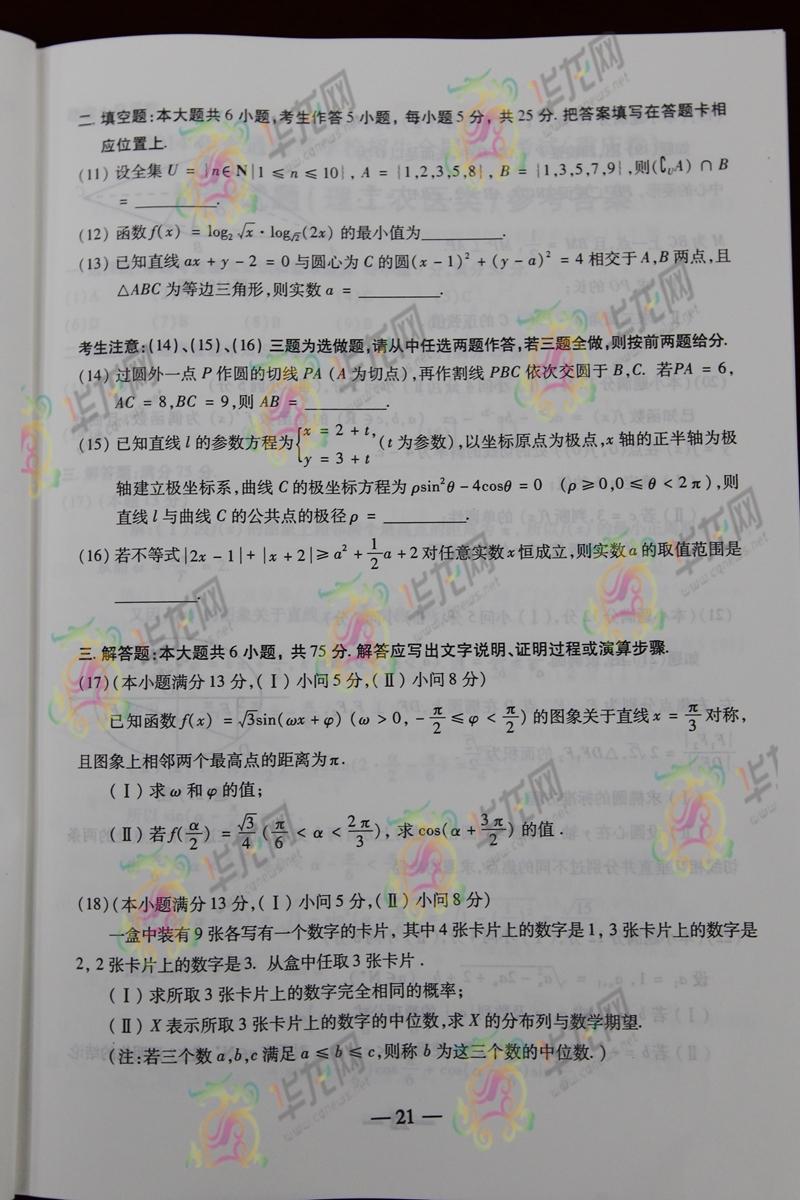 二. 填空题:本大题共 6 小题,考生作答 5 小题, 每小题 5 分, 共 25 分. 把答案填写在答题卡相
应位置上.
(11) 设全集 U = {n∈N|1 ≤ n ≤ 10}, A = {1,2,3,5,8}, B = {1,3,5,7,9},则(∁UA) ∩ B
= ________.
(12) 函数f(x) = log₂ √x · log√2(2x) 的最小值为________.
(13) 已知直线 ax + y - 2 = 0 与圆心为 C 的圆(x - 1)² + (y - a)² = 4 相交于 A,B 两点,且
△ABC 为等边三角形,则实数 a = ________.
考生注意:(14)、(15)、(16) 三题为选做题,请从中任选两题作答,若三题全做,则按前两题给分.
(14) 过圆外一点 P 作圆的切线 PA (A 为切点),再作割线 PBC 依次交圆于 B,C. 若PA = 6,
AC = 8,BC = 9,则 AB = ________.
(15) 已知直线 l 的参数方程为{x = 2 + t, y = 3 + t (t 为参数),以坐标原点为极点,x 轴的正半轴为极
轴建立极坐标系,曲线 C 的极坐标方程为 ρsin²θ - 4cosθ = 0 (ρ ≥ 0,0 ≤ θ < 2π),则
直线 l 与曲线 C 的公共点的极径 ρ = ________.
(16) 若不等式|2x - 1| + |x + 2| ≥ a² + 1/2 a + 2 对任意实数 x 恒成立,则实数 a 的取值范围是
________.
三. 解答题:本大题共 6 小题, 共 75 分. 解答应写出文字说明、证明过程或演算步骤.
(17)(本小题满分 13 分,(Ⅰ) 小问 5 分,(Ⅱ) 小问 8 分)
已知函数 f(x) = √3sin(ωx + φ) (ω > 0, - π/2 ≤ φ < π/2) 的图象关于直线 x = π/3 对称,
且图象上相邻两个最高点的距离为 π.
(Ⅰ) 求 ω 和 φ 的值;
(Ⅱ) 若 f(α/2) = √3/4 (π/6 < α < 2π/3), 求 cos(α + 3π/2) 的值.
(18)(本小题满分 13 分,(Ⅰ) 小问 5 分,(Ⅱ) 小问 8 分)
一盒中装有 9 张各写有一个数字的卡片, 其中 4 张卡片上的数字是 1, 3 张卡片上的数字是
2, 2 张卡片上的数字是 3. 从盒中任取 3 张卡片.
(Ⅰ) 求所取 3 张卡片上的数字完全相同的概率;
(Ⅱ) X 表示所取 3 张卡片上的数字的中位数,求 X 的分布列与数学期望.
(注:若三个数 a,b,c 满足 a ≤ b ≤ c,则称 b 为这三个数的中位数.)
— 21 —
华龙网
www.cqnews.net